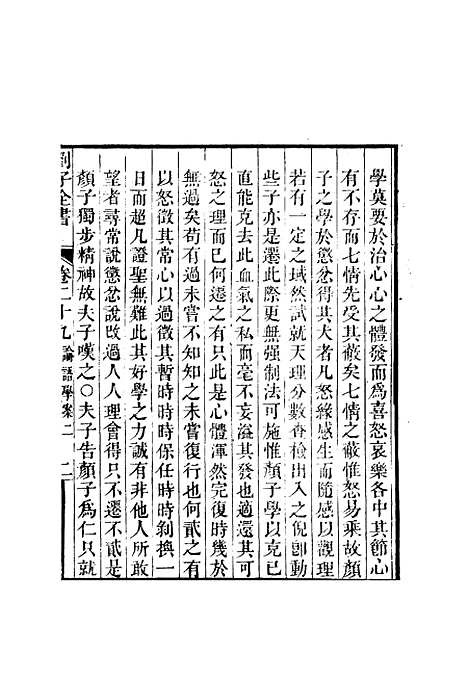 學莫要於治心心之體發而爲喜怒哀樂各中其節心
有不存而七情先受其蔽矣七情之蔽惟怒易乘故顏
子之學於懲忿得其大者凡怒緣感生而隨感以觀理
若有一定之域然試就天理分數查檢出入之倪卽動
些子亦是遷此際更無强制法可施惟顏子學以克己
直能克去此血氣之私而毫不妄溢其發也適還其可
怒之理而已何遷之有只此是心體渾然完復時幾於
無過矣苟有過未嘗不知知之未嘗復行也何貳之有
以怒徵其常心以過徵其暫時時時保任時時剝換一
日而超凡證聖無難此其好學之力誠有非他人所敢
望者尋常說懲忿說改過人人理會得只不遷不貳是
顏子獨步精神故夫子嘆之○夫子告顏子爲仁只就
劉子全書 卷二十九 論語學案二 二